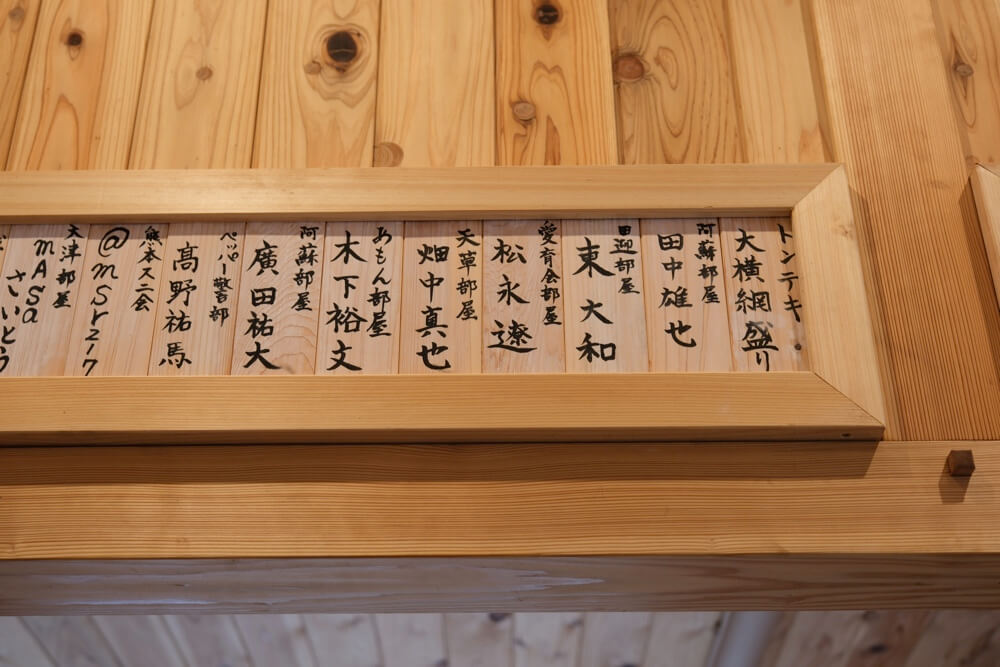 トンテキ
大横綱盛り
阿蘇部屋
田中雄也
田迎部屋
東大和
愛育会部屋
松永遼
天草部屋
畑中真也
あもん部屋
木下裕文
阿蘇部屋
廣田祐大
ペッパー警部
髙野祐馬
熊本スニ会
@msrz17
大津部屋
mASa
さいとう